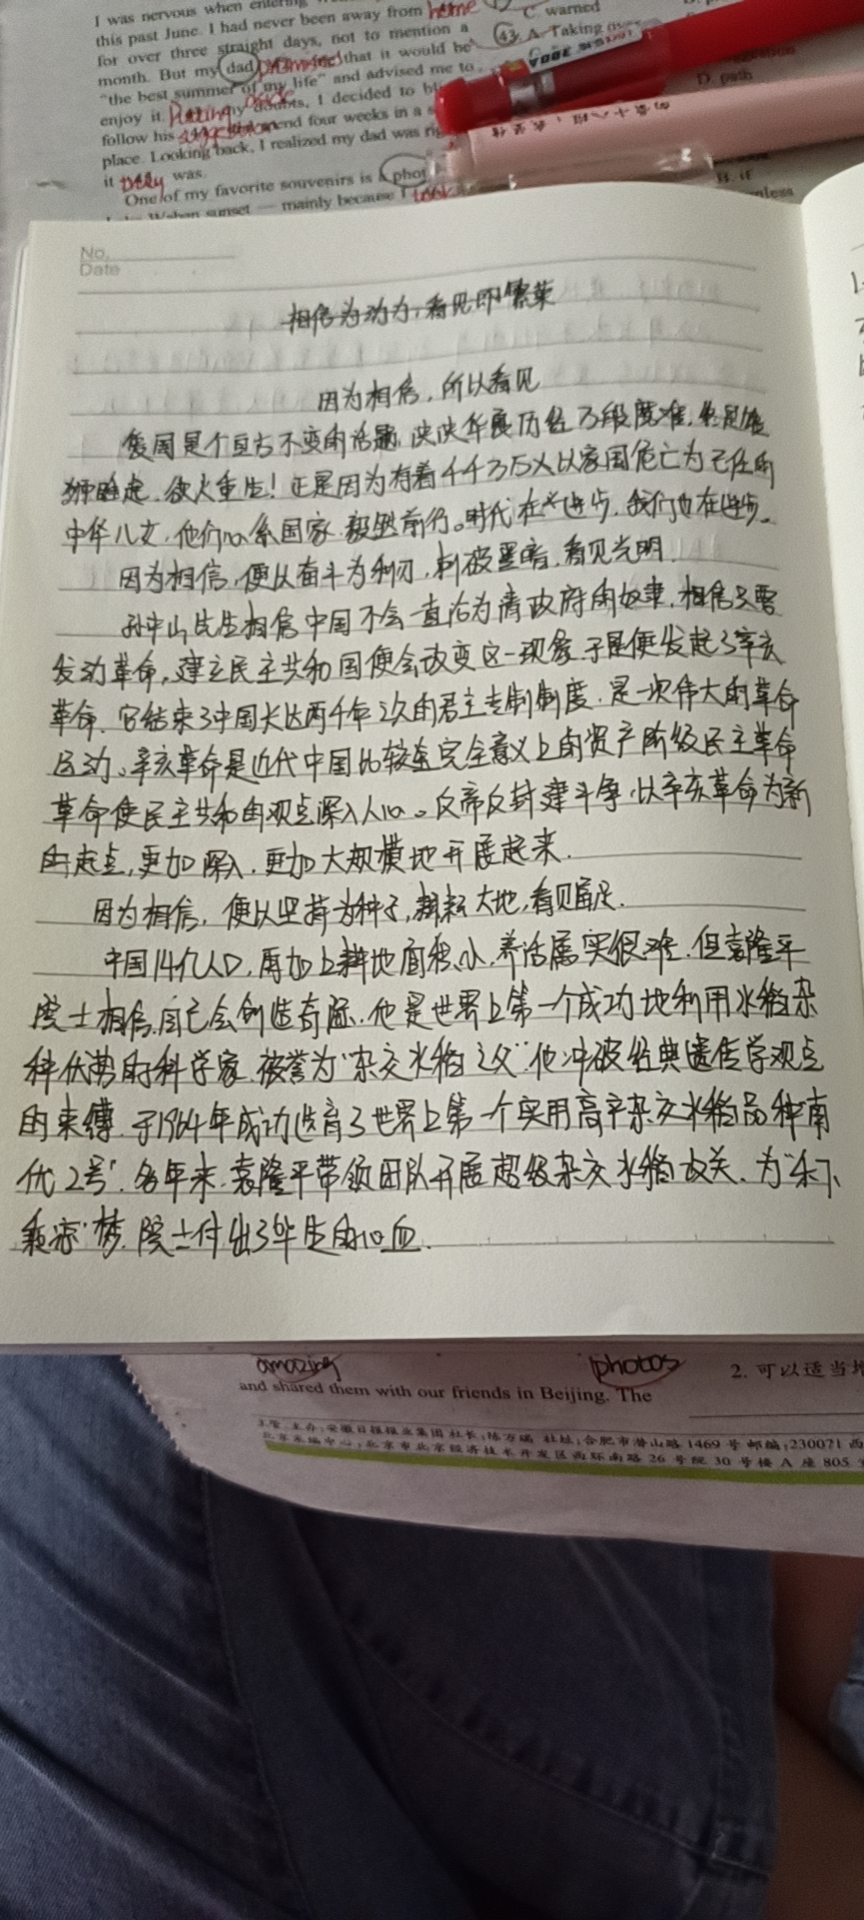 I was nervous when entering
this past June. I had never been away from home
for over three straight days, not to mention a
month. But my dad promised that it would be
"the best summer of my life" and advised me to
enjoy it. Putting my doubts, I decided to
follow his suggestion and four weeks in a
place. Looking back, I realized my dad was
it was.
One of my favorite souvenirs is a phot
sunset — mainly because I took
C. warned
43. A. Taking over
D. path
No.
Date
相信为动力,看见即繁荣
因为相信,所以看见
爱国是个亘古不变的话题,泱泱华夏历经万段磨难,终是雄
狮睡起,欲火重生!正是因为有着千千万万以家国危亡为己任的
中华儿女,他们心系国家,毅然前行。时代在进步,我们也在进步。
因为相信,便以奋斗为利刃,刺破黑暗,看见光明.
孙中山先生相信中国不会一直沦为清政府的奴隶,相信只要
发动革命,建立民主共和国便会改变这一现象,于是便发起了辛亥
革命,它结束了中国长达两千年之久的君主专制制度,是一次伟大的革命
运动。辛亥革命是近代中国比较全完全意义上的资产阶级民主革命
革命使民主共和的观点深入人心。反帝反封建斗争,以辛亥革命为新
的起点,更加深入,更加大规模地开展起来.
因为相信,便以坚持为种子,耕耘大地,看见富足.
中国14亿人口,再加上耕地面积小,养活属实很难,但袁隆平
院士相信自己会创造奇迹.他是世界上第一个成功地利用水稻杂
种优势的科学家,被誉为"杂交水稻之父".他冲破经典遗传学观点
的束缚,于1964年成功选育了世界上第一个实用高产杂交水稻品种南
优2号".多年来,袁隆平带领团队开展超级杂交水稻攻关,为"禾下
乘凉"梦,院士付出了毕生的心血.
amazing
photos
and shared them with our friends in Beijing. The
2. 可以适当增
主管、主办:安徽日报报业集团 社长:陈方瑞 社址:合肥市潜山路 1469 号 邮编:230071
北京市北京经济技术开发区西环南路 26 号院 30 号楼 A 座 805